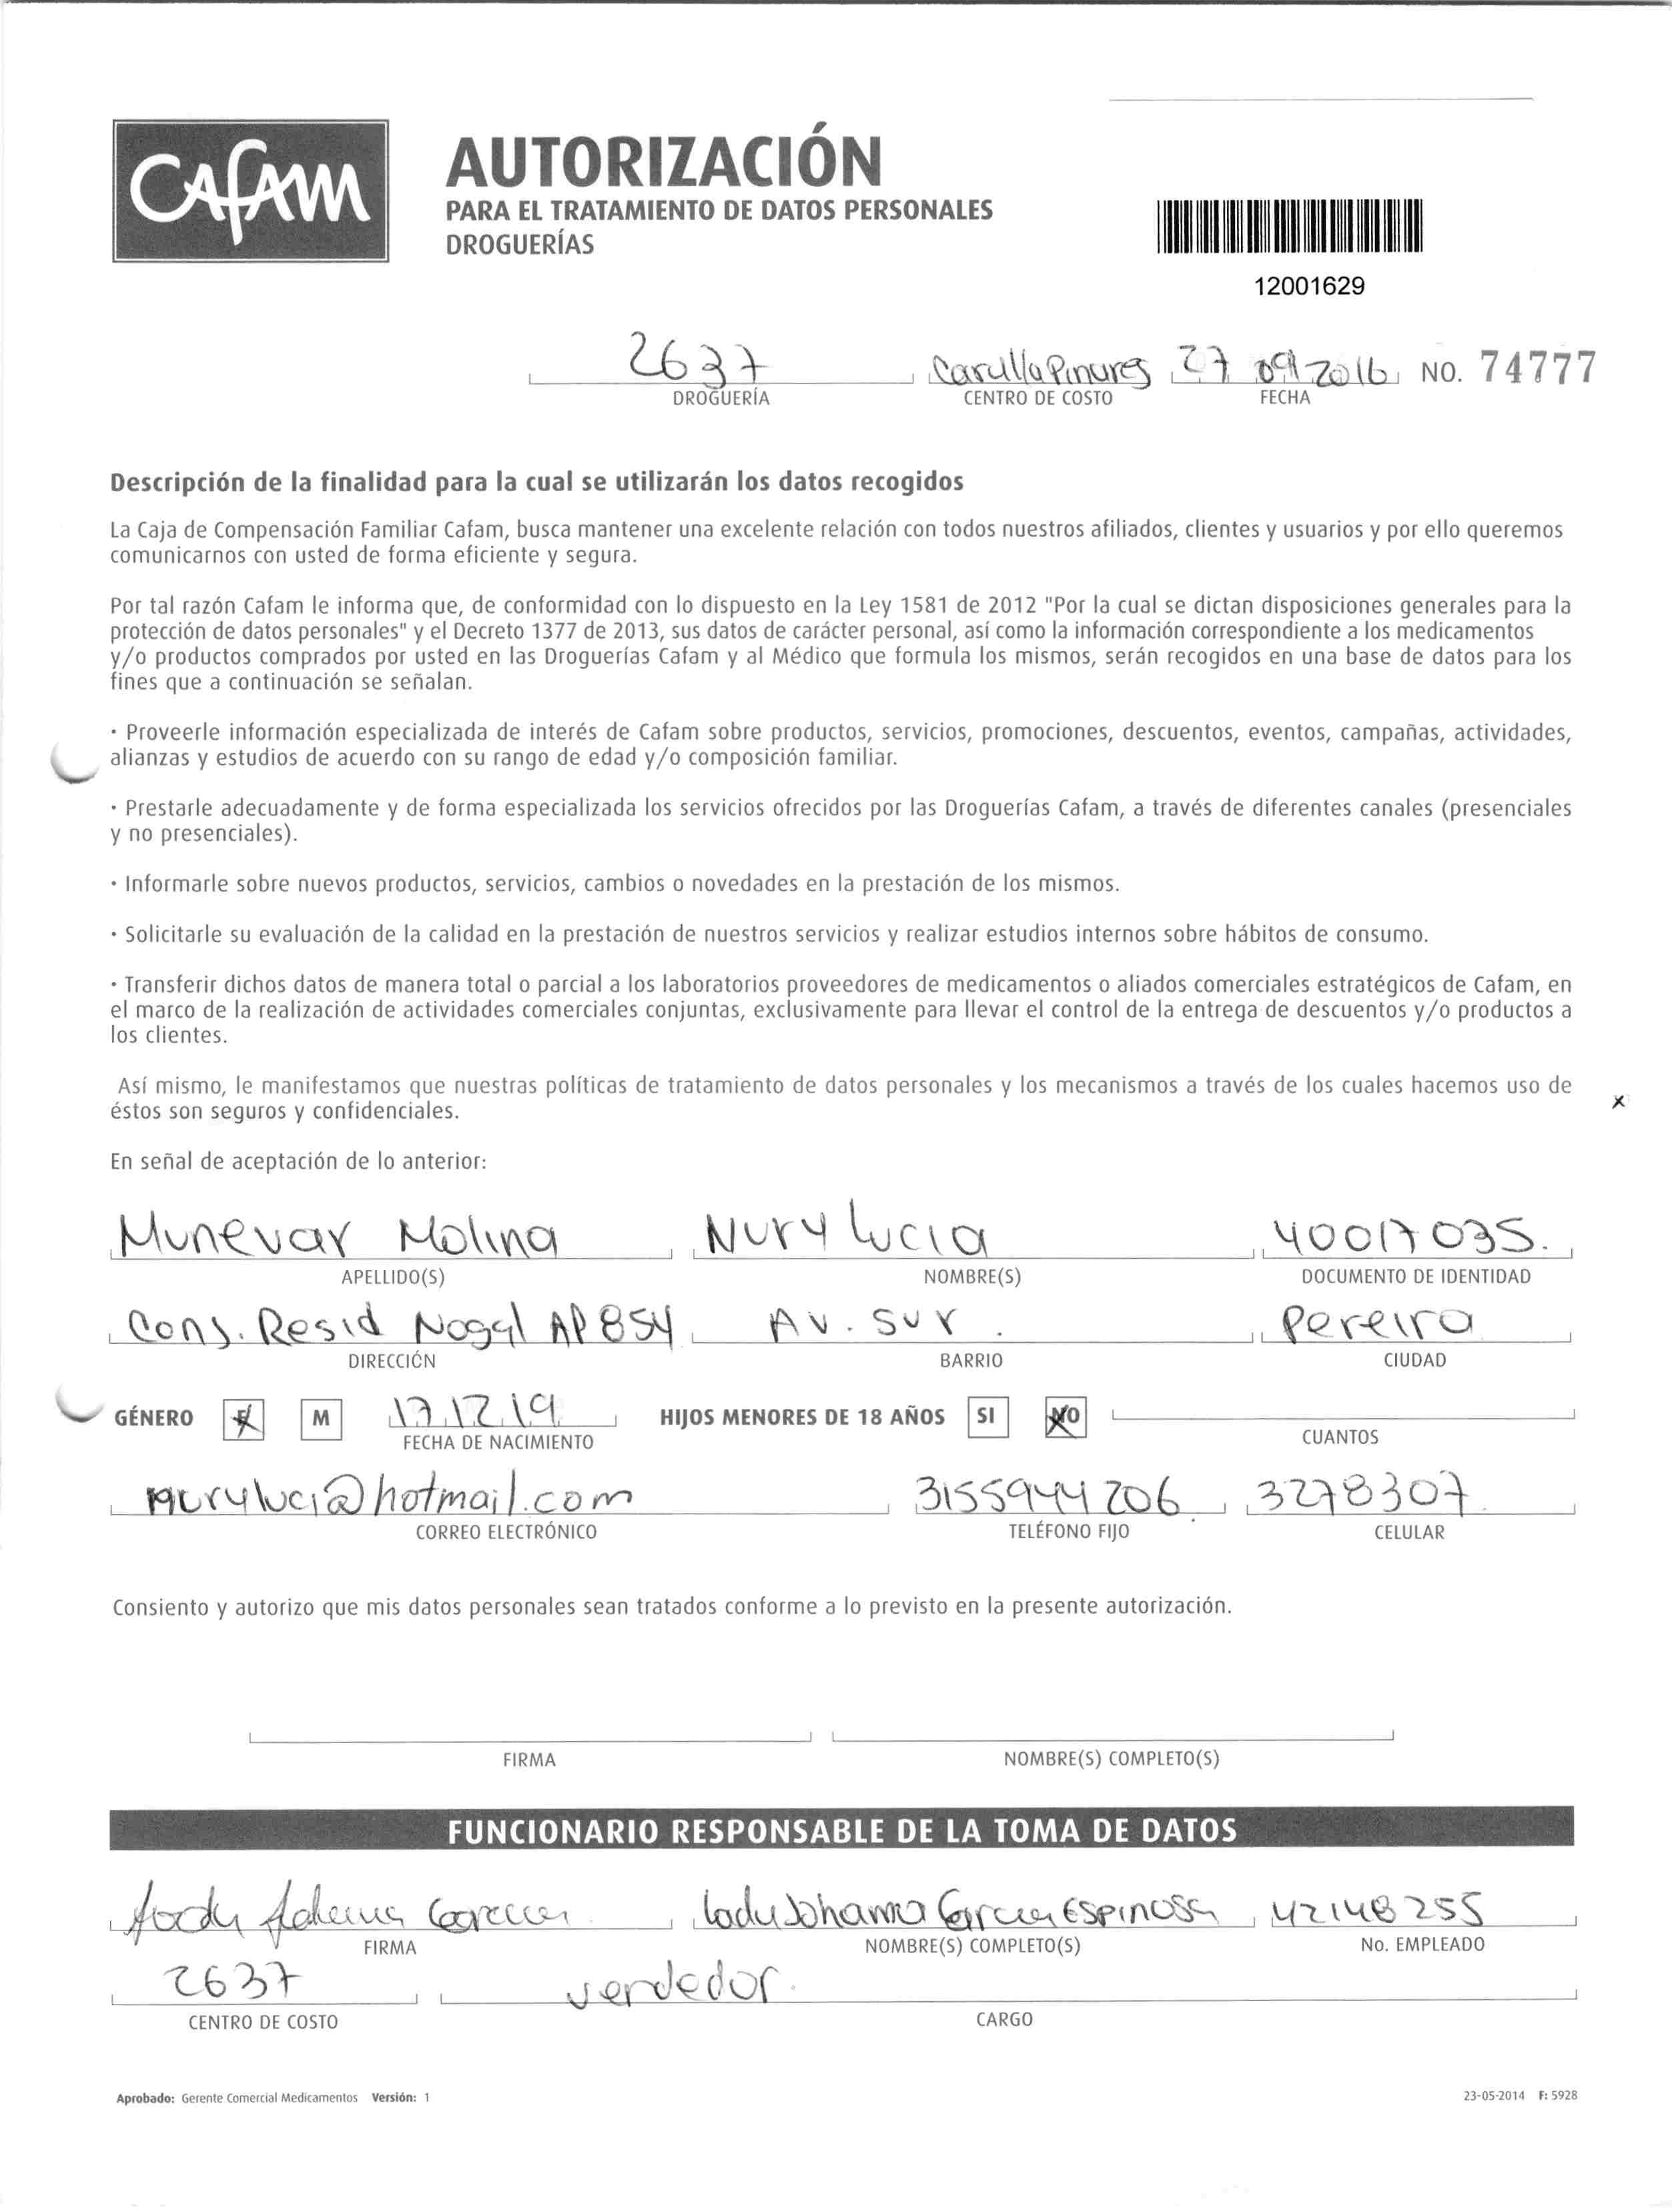 CAFAM
AUTORIZACIÓN
PARA EL TRATAMIENTO DE DATOS PERSONALES
DROGUERÍAS
12001629
2637 Carulla Pinares 27 09 2016 NO. 74777
DROGUERÍA CENTRO DE COSTO FECHA
Descripción de la finalidad para la cual se utilizarán los datos recogidos
La Caja de Compensación Familiar Cafam, busca mantener una excelente relación con todos nuestros afiliados, clientes y usuarios y por ello queremos
comunicarnos con usted de forma eficiente y segura.
Por tal razón Cafam le informa que, de conformidad con lo dispuesto en la Ley 1581 de 2012 "Por la cual se dictan disposiciones generales para la
protección de datos personales" y el Decreto 1377 de 2013, sus datos de carácter personal, así como la información correspondiente a los medicamentos
y/o productos comprados por usted en las Droguerías Cafam y al Médico que formula los mismos, serán recogidos en una base de datos para los
fines que a continuación se señalan.
· Proveerle información especializada de interés de Cafam sobre productos, servicios, promociones, descuentos, eventos, campañas, actividades,
alianzas y estudios de acuerdo con su rango de edad y/o composición familiar.
· Prestarle adecuadamente y de forma especializada los servicios ofrecidos por las Droguerías Cafam, a través de diferentes canales (presenciales
y no presenciales).
· Informarle sobre nuevos productos, servicios, cambios o novedades en la prestación de los mismos.
· Solicitarle su evaluación de la calidad en la prestación de nuestros servicios y realizar estudios internos sobre hábitos de consumo.
· Transferir dichos datos de manera total o parcial a los laboratorios proveedores de medicamentos o aliados comerciales estratégicos de Cafam, en
el marco de la realización de actividades comerciales conjuntas, exclusivamente para llevar el control de la entrega de descuentos y/o productos a
los clientes.
Así mismo, le manifestamos que nuestras políticas de tratamiento de datos personales y los mecanismos a través de los cuales hacemos uso de
éstos son seguros y confidenciales.
x
En señal de aceptación de lo anterior:
Munevar Molina Nury Lucia 40017035.
APELLIDO(S) NOMBRE(S) DOCUMENTO DE IDENTIDAD
Conj. Resid Nogal AP 854 Av. Sur. Pereira
DIRECCIÓN BARRIO CIUDAD
GÉNERO F M 17 12 19 HIJOS MENORES DE 18 AÑOS SI NO
FECHA DE NACIMIENTO CUANTOS
nuryluci@hotmail.com 3155944206. 3278307
CORREO ELECTRÓNICO TELÉFONO FIJO CELULAR
Consiento y autorizo que mis datos personales sean tratados conforme a lo previsto en la presente autorización.
FIRMA NOMBRE(S) COMPLETO(S)
FUNCIONARIO RESPONSABLE DE LA TOMA DE DATOS
Garcia Johanna Garcia Espinosa 42148255
FIRMA NOMBRE(S) COMPLETO(S) No. EMPLEADO
2637 vendedor.
CENTRO DE COSTO CARGO
Aprobado: Gerente Comercial Medicamentos Versión: 1 23-05-2014 F: 5928